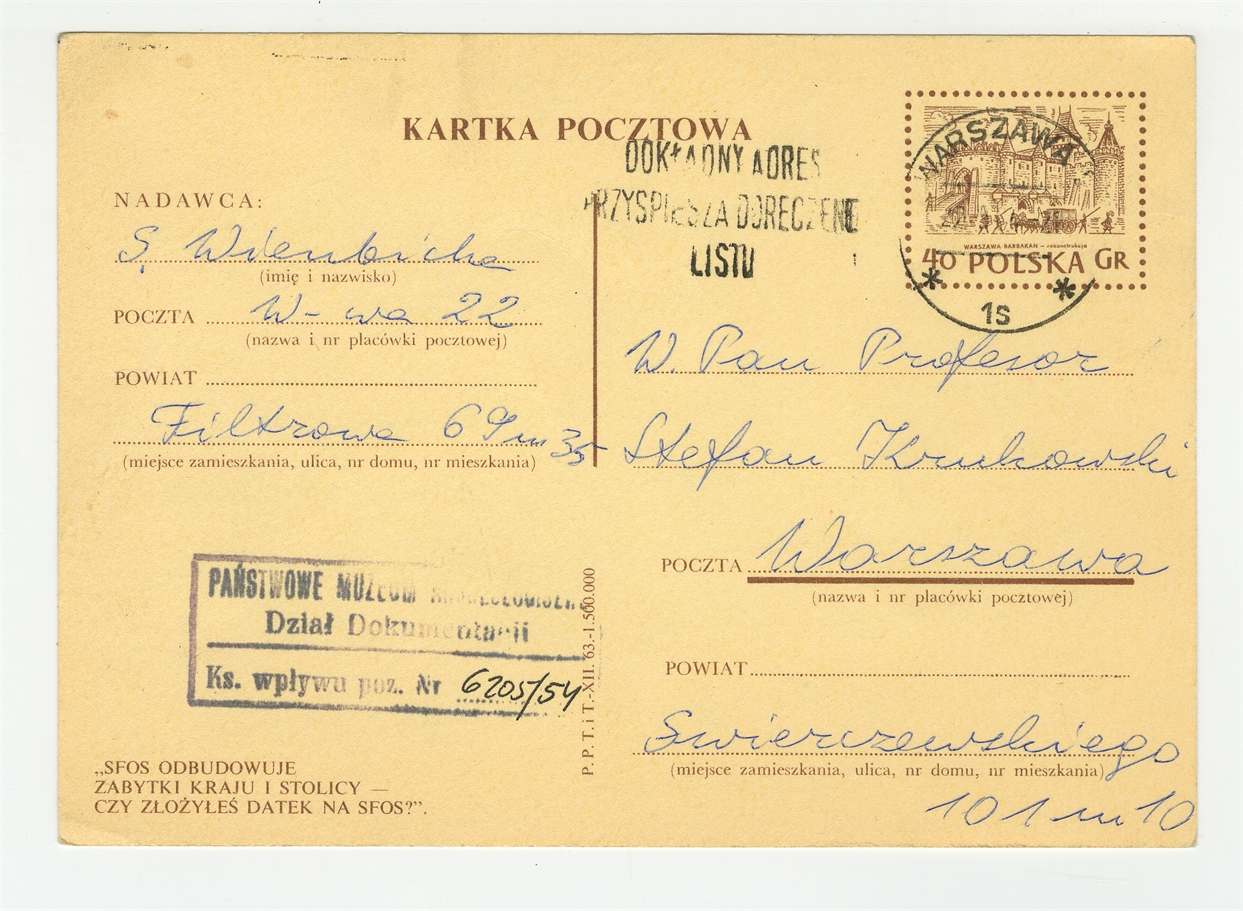 KARTKA POCZTOWA
DOKŁADNY ADRES
PRZYSPIESZA DORĘCZENIE
LISTU
WARSZAWA
1S
WARSZAWA BARBAKAN — rekonstrukcja
40 POLSKA GR
NADAWCA:
S.
(imię i nazwisko)
POCZTA W-wa 22
(nazwa i nr placówki pocztowej)
POWIAT
Filtrowa 69 m 35
(miejsce zamieszkania, ulica, nr domu, nr mieszkania)
W. Pan Profesor
Stefan Krukowski
POCZTA Warszawa
(nazwa i nr placówki pocztowej)
POWIAT
Swierczewskiego
(miejsce zamieszkania, ulica, nr domu, nr mieszkania)
101 m 10
PAŃSTWOWE MUZEUM ARCHEOLOGICZNE
Dział Dokumentacji
Ks. wpływu poz. Nr 6205/54
P. P. T. i T.-XII. 63.-1.500.000
„SFOS ODBUDOWUJE
ZABYTKI KRAJU I STOLICY —
CZY ZŁOŻYŁEŚ DATEK NA SFOS?".